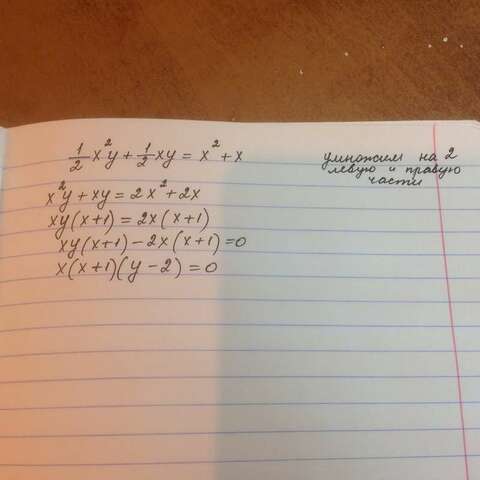 1/2 x²y + 1/2 xy = x² + x
умножим на 2
левую и правую
части
x²y + xy = 2x² + 2x
xy(x+1) = 2x(x+1)
xy(x+1) - 2x(x+1) = 0
x(x+1)(y-2) = 0